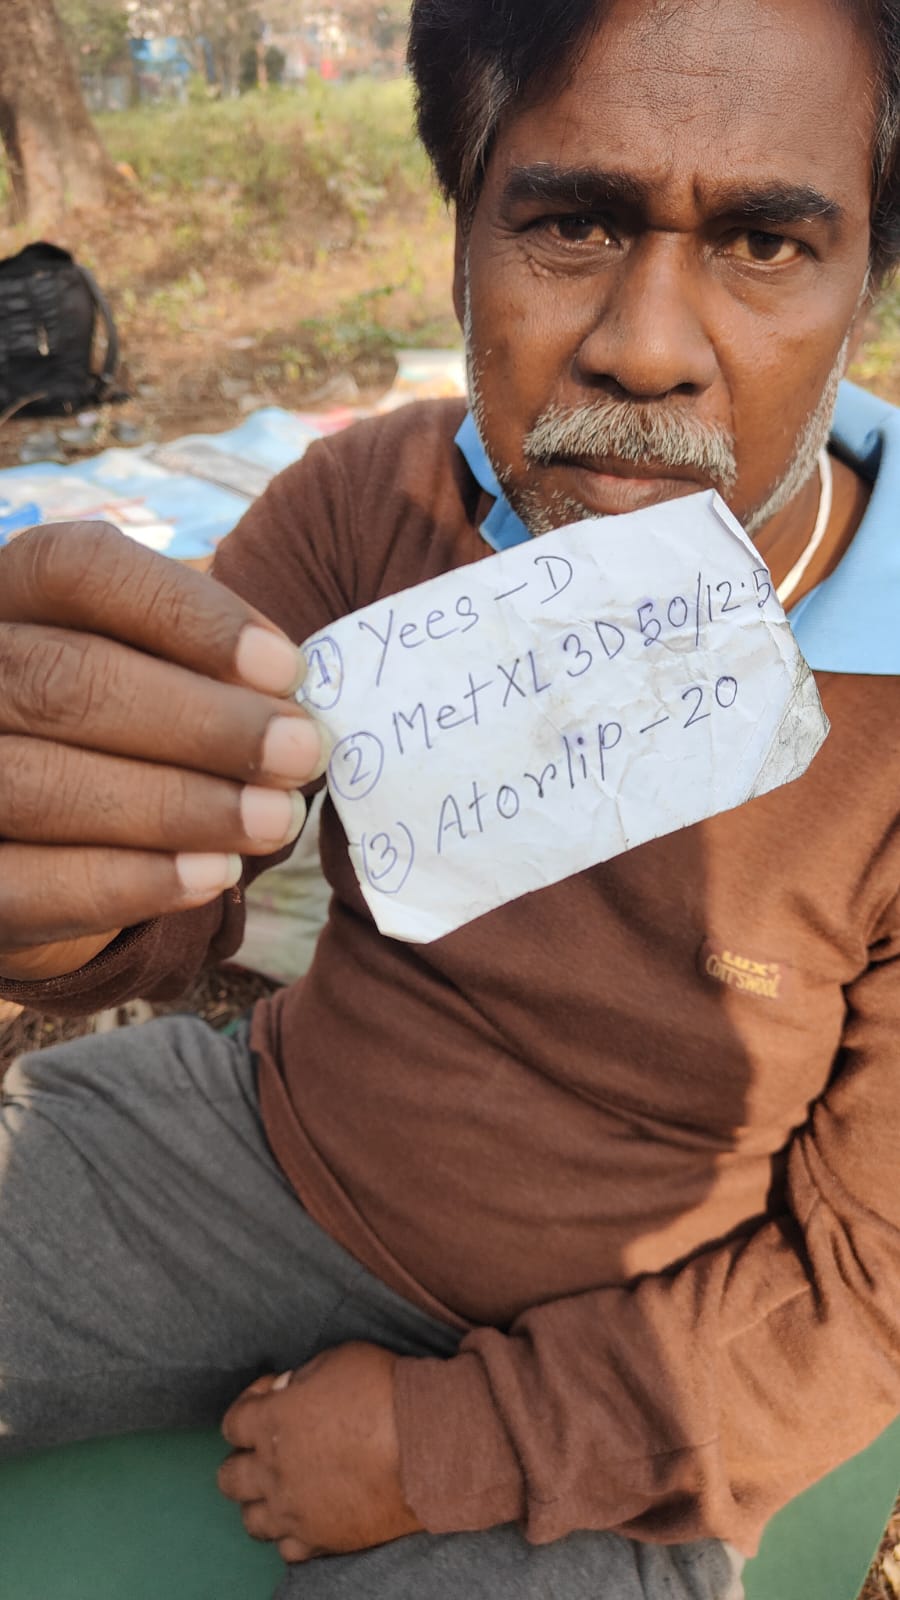 ① Yees - D
② Met XL 3D 50/12.5
③ Atorlip - 20
LUX
COTT'SWOOL